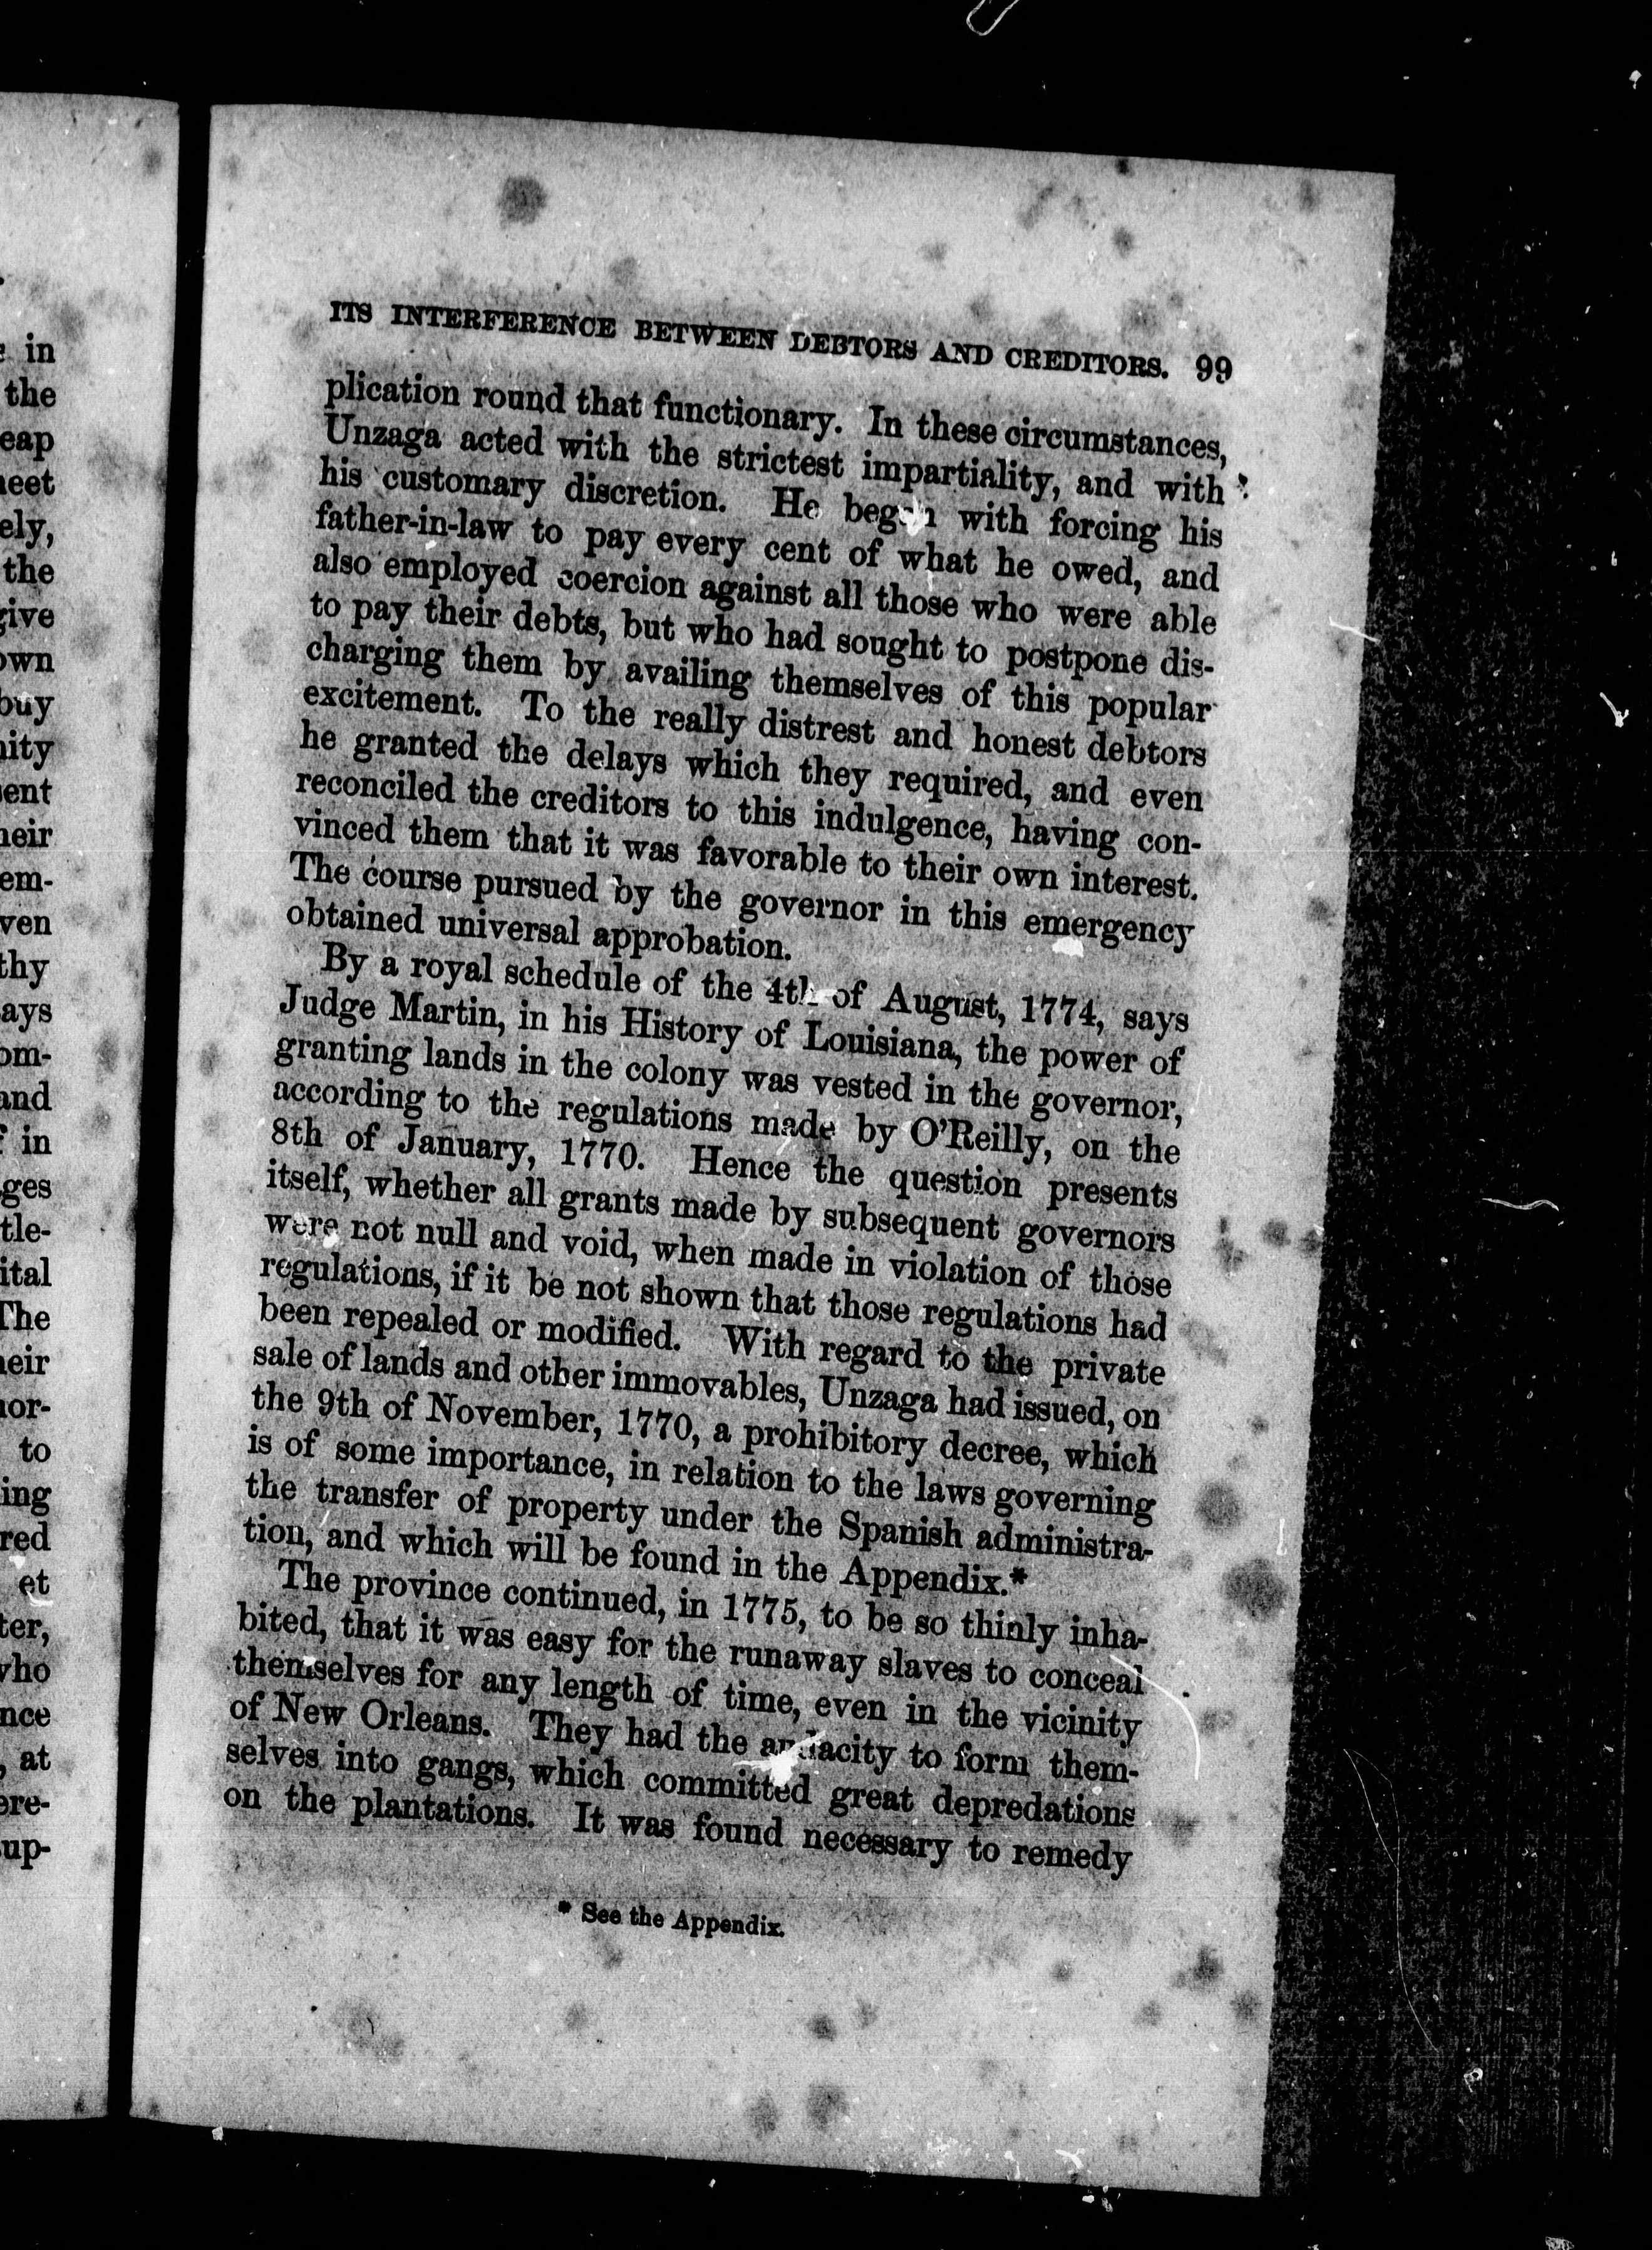 ITS INTERFERENCE BETWEEN DEBTORS AND CREDITORS. 99
plication round that functionary. In these circumstances,
Unzaga acted with the strictest impartiality, and with
his customary discretion. He began with forcing his
father-in-law to pay every cent of what he owed, and
also employed coercion against all those who were able
to pay their debts, but who had sought to postpone dis-
charging them by availing themselves of this popular
excitement. To the really distrest and honest debtors
he granted the delays which they required, and even
reconciled the creditors to this indulgence, having con-
vinced them that it was favorable to their own interest.
The course pursued by the governor in this emergency
obtained universal approbation.
By a royal schedule of the 4th of August, 1774, says
Judge Martin, in his History of Louisiana, the power of
granting lands in the colony was vested in the governor,
according to the regulations made by O'Reilly, on the
8th of January, 1770. Hence the question presents
itself, whether all grants made by subsequent governors
were not null and void, when made in violation of those
regulations, if it be not shown that those regulations had
been repealed or modified. With regard to the private
sale of lands and other immovables, Unzaga had issued, on
the 9th of November, 1770, a prohibitory decree, which
is of some importance, in relation to the laws governing
the transfer of property under the Spanish administra-
tion, and which will be found in the Appendix.*
The province continued, in 1775, to be so thinly inha-
bited, that it was easy for the runaway slaves to conceal
themselves for any length of time, even in the vicinity
of New Orleans. They had the audacity to form them-
selves into gangs, which committed great depredations
on the plantations. It was found necessary to remedy
* See the Appendix.